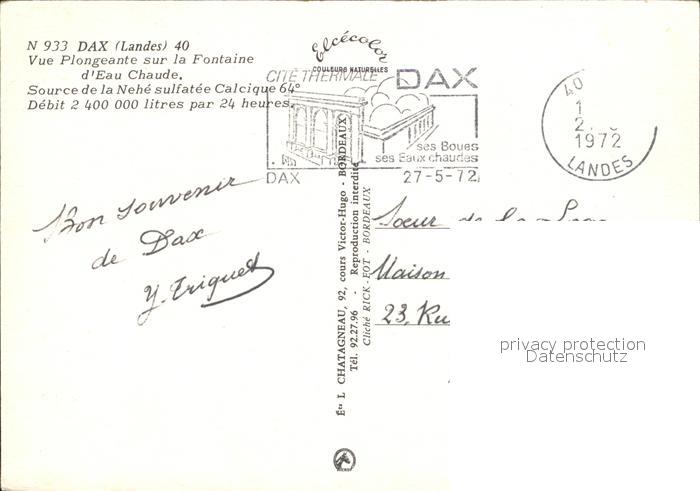 N 933 DAX (Landes) 40
Vue Plongeante sur la Fontaine
d'Eau Chaude.
Source de la Nehé sulfatée Calcique 64°
Débit 2 400 000 litres par 24 heures.
Elcécolor
COULEURS NATURELLES
CITÉ THERMALE DAX
ses Boues
ses Eaux chaudes
DAX 27-5-72
40
1
2
1972
LANDES
Bon souvenir
de Dax
Y. Triquet
Éts L CHATAGNEAU, 92, cours Victor-Hugo - BORDEAUX
Tél. 92.27.96 - Reproduction interdite
Cliché RICK-FOT - BORDEAUX
Sœur de la
Maison
23, Ru
privacy protection
Datenschutz